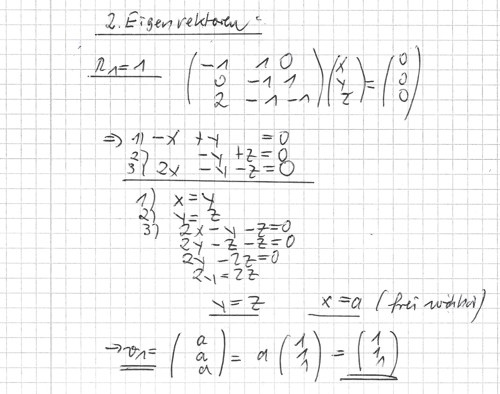 2. Eigenvektoren:
λ1=1 (-1 1 0) (x) = (0)
(0 -1 1) (y) (0)
(2 -1 -1) (z) (0)
⇒ 1) -x +y =0
2) -y +z =0
3) 2x -y -z =0
1) x=y
2) y=z
3) 2x-y-z=0
2y-z-z=0
2y-2z=0
2y=2z
y=z x=a (frei wählbar)
→ v1= (a) = a (1) = (1)
(a) (1) (1)
(a) (1) (1)